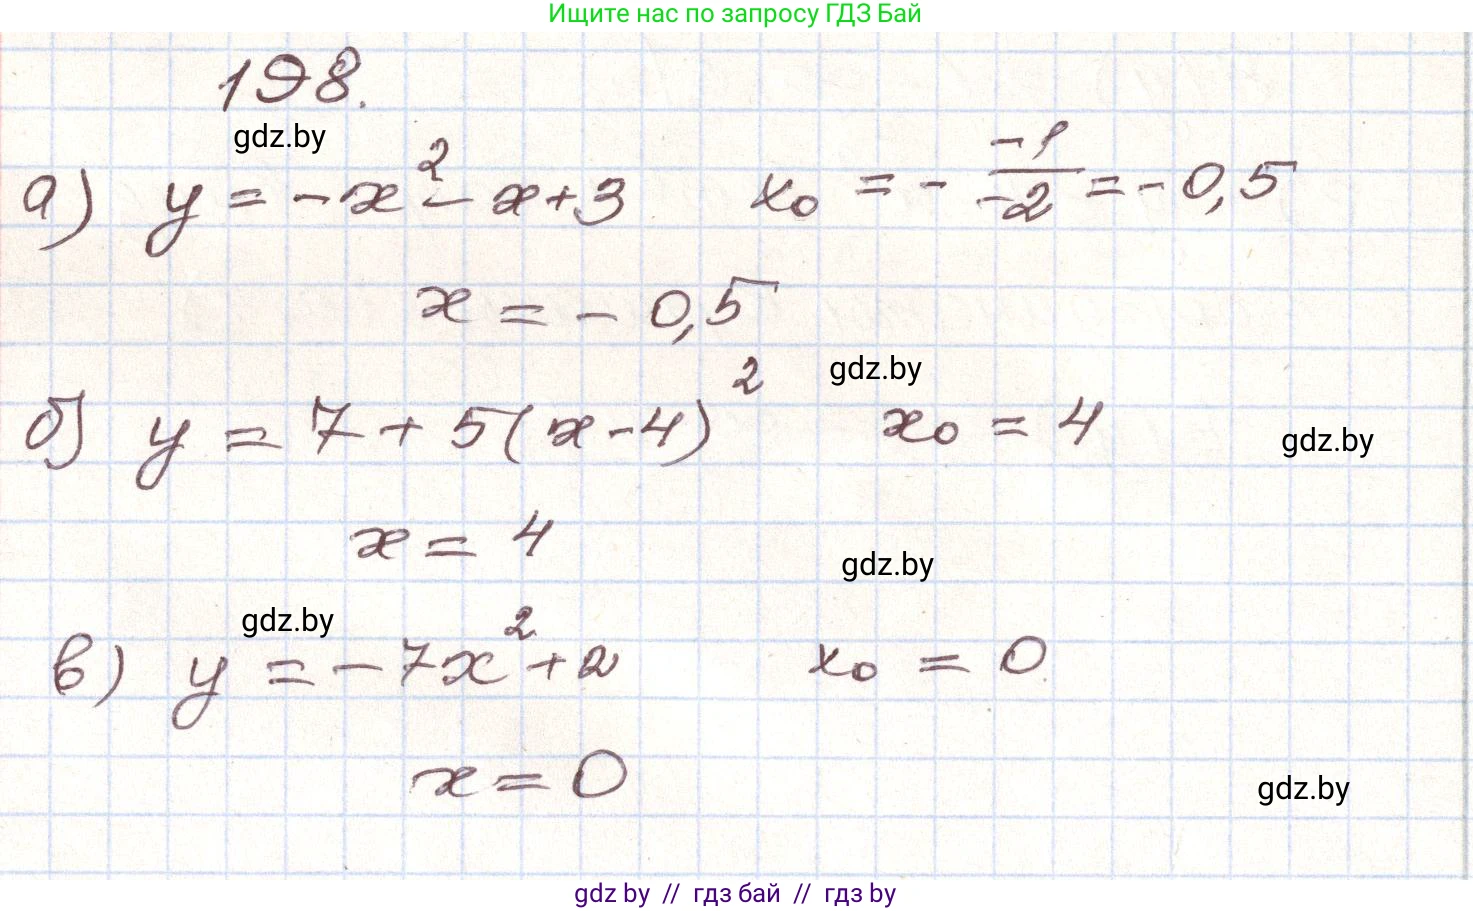 Ищите нас по запросу ГДЗ Бай
198.
gdz.by
а) y = -x² - x + 3 x₀ = - -1/-2 = - 0,5
x = - 0,5
gdz.by
б) y = 7 + 5(x - 4)² x₀ = 4
gdz.by
x = 4
gdz.by
gdz.by
в) y = - 7x² + 2 x₀ = 0
x = 0
gdz.by
gdz.by // гдз бай // гдз by